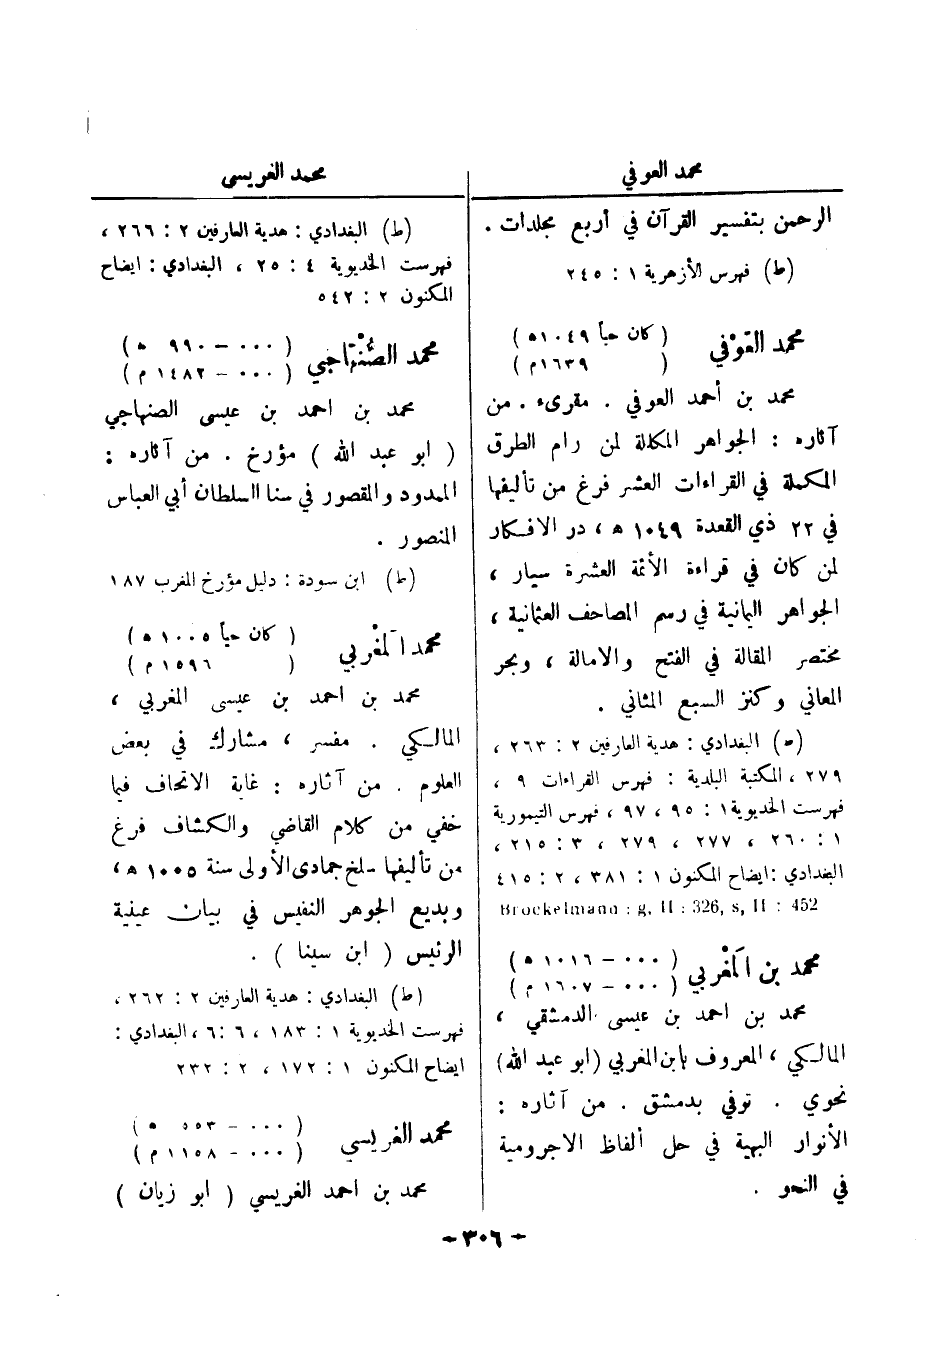 محمد العوفي
الرحمن بتفسير القرآن في أربع مجلدات .
(ط) فهرس الأزهرية ١ : ٢٤٥
محمد العَوْفي ( كان حياً ١٠٤٩ه )
( ١٦٣٩م )
محمد بن أحمد العوفي . مقرىء . من
آثاره : الجواهر المكللة لمن رام الطرق
المكملة في القراءات العشر فرغ من تأليفها
في ٢٢ ذي القعدة ١٠٤٩ ه ، در الافكار
لمن كان في قراءة الأئمة العشرة سيار ،
الجواهر اليمانية في رسم المصاحف العثمانية ،
مختصر المقالة في الفتح والامالة ، وبحر
المعاني وكنز السبع المثاني .
(ط) البغدادي : هدية العارفين ٢ : ٢٦٣ ،
٢٧٩ ، المكتبة البلدية : فهرس القراءات ٩ ،
فهرست الخديوية ١ : ٩٥ ، ٩٧ ، فهرس التيمورية
١ : ٢٦٠ ، ٢٧٧ ، ٢٧٩ ، ٣ : ٢١٥ ،
البغدادي : ايضاح المكنون ١ : ٣٨١ ، ٢ : ٤١٥
Brockelmann : g, II : 326, s, II : 452
محمد بن المَغْربي ( ٠٠٠ – ١٠١٦ ه )
( ٠٠٠ – ١٦٠٧ م )
محمد بن احمد بن عيسى الدمشقي ،
المالكي ، المعروف بابن المغربي (ابو عبد الله)
نحوي . توفي بدمشق . من آثاره :
الأنوار البهية في حل ألفاظ الاجرومية
في النحو .
محمد الغريسي
(ط) البغدادي : هدية العارفين ٢ : ٢٦٦ ،
فهرست الخديوية ٤ : ٢٥ ، البغدادي : ايضاح
المكنون ٢ : ٥٤٢
محمد الصُّنْهَاجي ( ٠٠٠ – ٩٩٠ ه )
( ٠٠٠ – ١٤٨٢ م )
محمد بن احمد بن عيسى الصنهاجي
( ابو عبد الله ) مؤرخ . من آثاره :
الممدود والمقصور في سنا السلطان أبي العباس
المنصور .
(ط) ابن سودة : دليل مؤرخ المغرب ١٨٧
محمد المَغْربي ( كان حياً ١٠٠٥ ه )
( ١٥٩٦ م )
محمد بن احمد بن عيسى المغربي ،
المالكي . مفسر ، مشارك في بعض
العلوم . من آثاره : غاية الاتحاف فيما
خفي من كلام القاضي والكشاف فرغ
من تأليفها سلخ جمادى الأولى سنة ١٠٠٥ ه ،
وبديع الجوهر النفيس في بيان عينية
الرئيس ( ابن سينا ) .
(ط) البغدادي : هدية العارفين ٢ : ٢٦٢ ،
فهرست الخديوية ١ : ١٨٣ ، ٦ : ٦ ، البغدادي :
ايضاح المكنون ١ : ١٧٢ ، ٢ : ٢٣٢
محمد الغريسي ( ٠٠٠ – ٥٥٣ ه )
( ٠٠٠ – ١١٥٨ م )
محمد بن احمد الغريسي ( ابو زيان )
– ٣٠٦ –